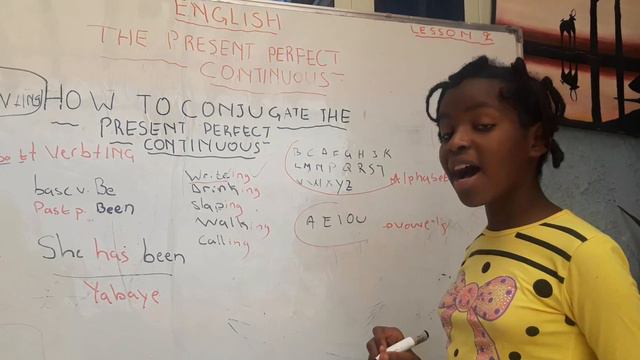 ENGLISH
LESSON 2
THE PRESENT PERFECT
CONTINUOUS
HOW TO CONJUGATE THE
PRESENT PERFECT
CONTINUOUS
Verbting
base v. Be
Past p.. Been
She has been
Yabaye
Writeing
Drinking
slaping
Walking
Calling
B C D F G H J K
L M N P Q R S T
V W X Y Z
Alphabet
A E I O U